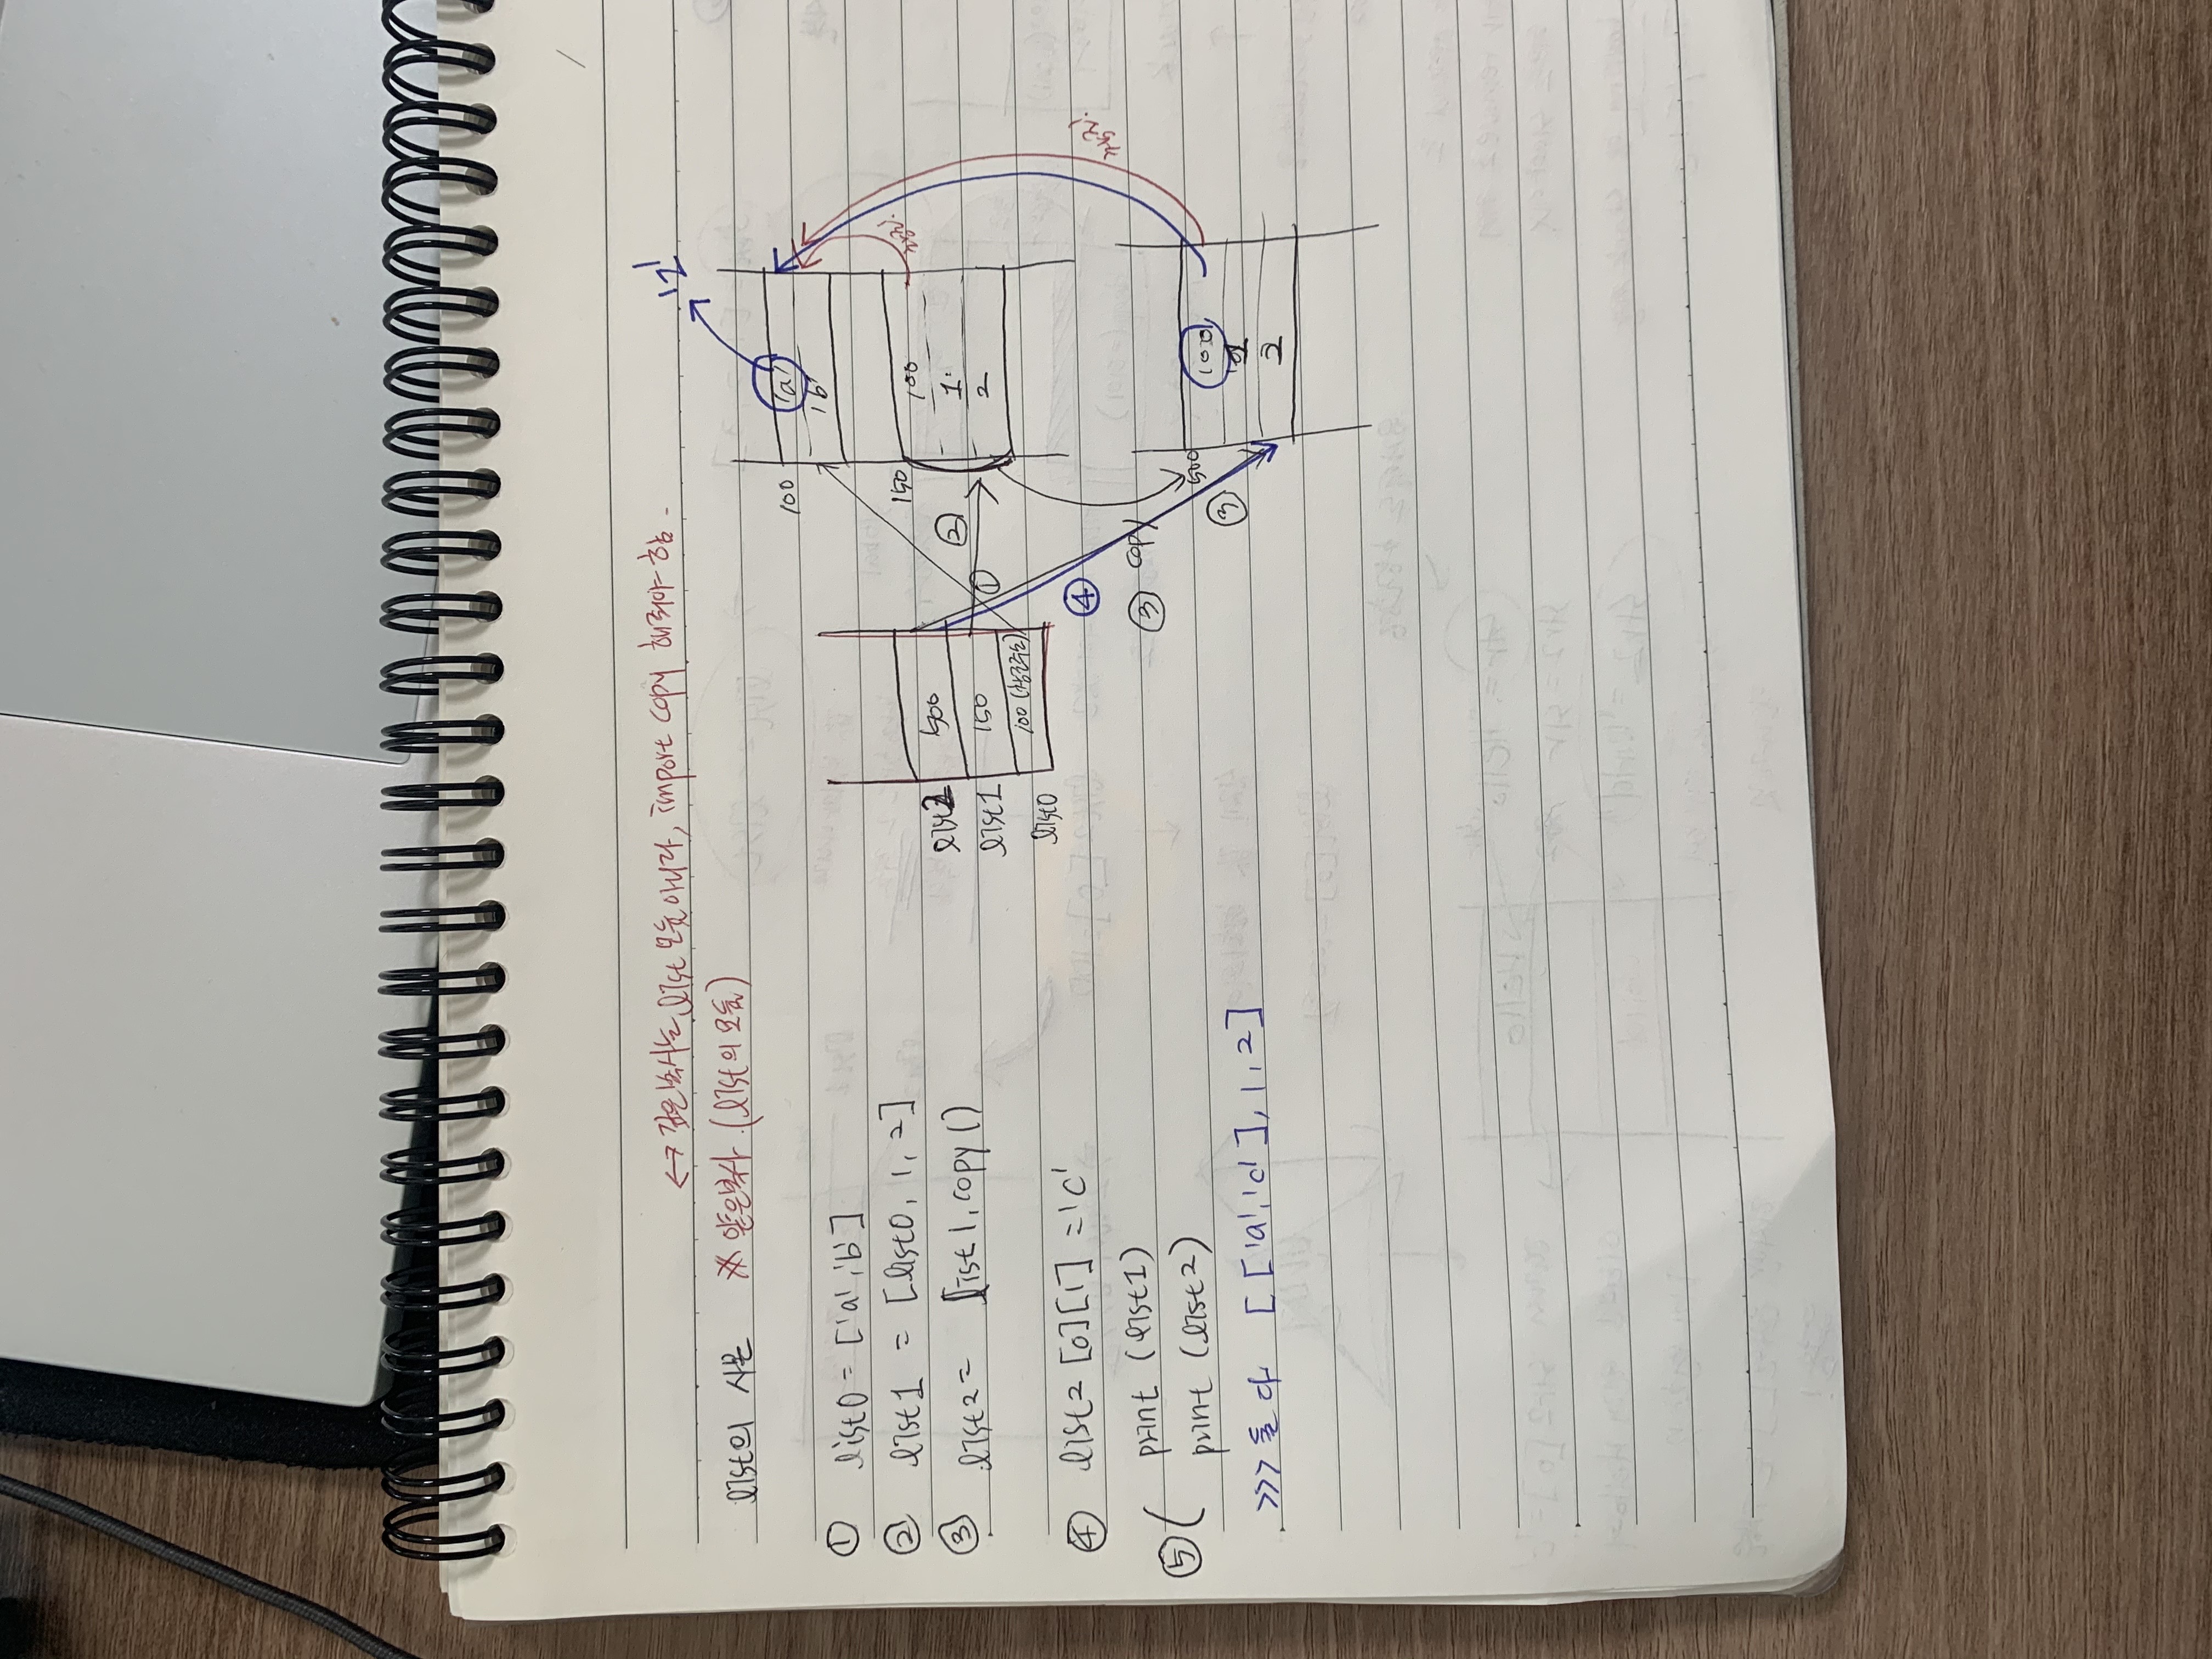 ↔ 깊은복사는 list 모듈 아니라, import copy 해줘야 함.
list의 사본 ※ 얕은복사 (list의 모듈)
① list0 = ['a','b']
② list1 = [list0, 1, 2]
③ list2 = list1.copy()
④ list2[0][1] = 'c'
⑤ ( print (list1)
print (list2)
>>> 둘 다 [['a','c'], 1, 2]
list2 500
list1 150
list0 100 (참조주소)
①
②
④
③ copy
③
100 'a'
'b'
150 100
1
2
참조!
500 100
1
2
참조!